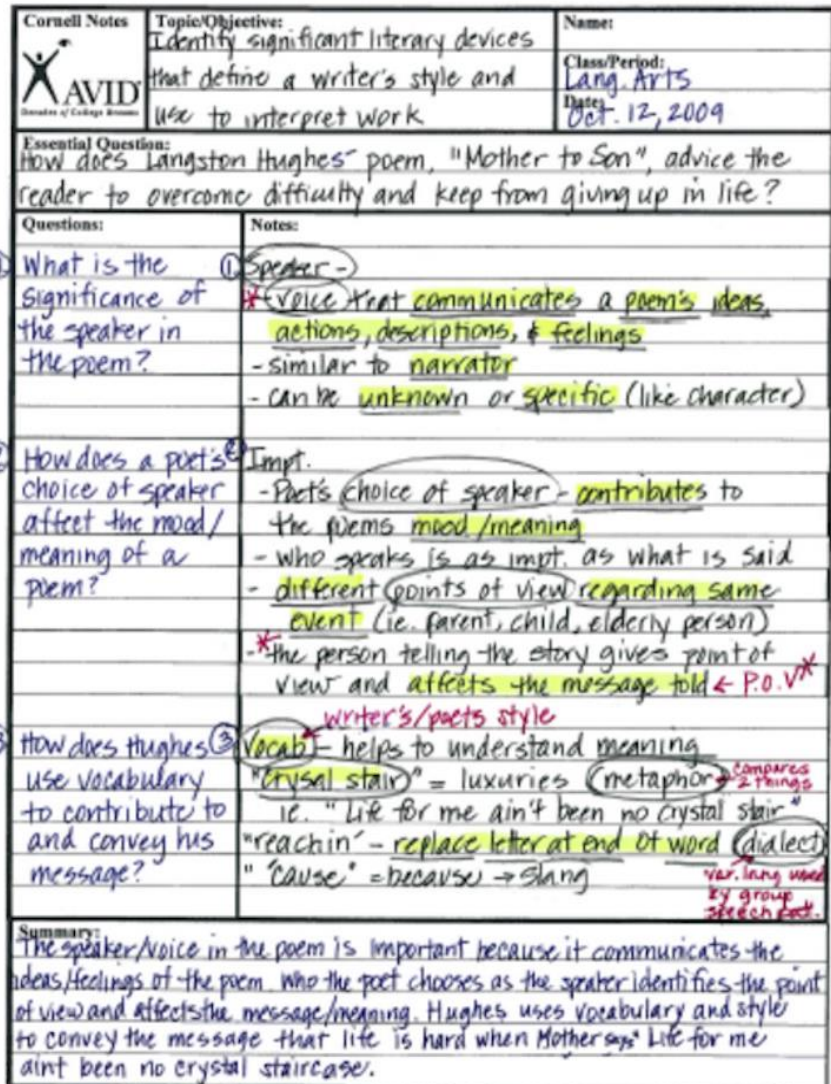 Cornell Notes
AVID
Decades of College Dreams
Topic/Objective:
Identify significant literary devices
that define a writer's style and
use to interpret work
Name:
Class/Period:
Lang. Arts
Date:
Oct. 12, 2009
Essential Question:
How does Langston Hughes' poem, "Mother to Son", advice the
reader to overcome difficulty and keep from giving up in life?
Questions:
What is the
significance of
the speaker in
the poem?
How does a poet's
choice of speaker
affect the mood/
meaning of a
poem?
How does Hughes
use vocabulary
to contribute to
and convey his
message?
Notes:
① Speaker -
* voice that communicates a poem's ideas,
actions, descriptions, & feelings
- similar to narrator
- can be unknown or specific (like character)
② Impt.
- Poet's choice of speaker - contributes to
the poems mood/meaning
- who speaks is as impt. as what is said
- different points of view regarding same
event (ie. parent, child, elderly person)
- * the person telling the story gives point of
view and affects the message told ← P.O.V *
writer's/poets style
③ Vocab - helps to understand meaning
"crysal stair" = luxuries (metaphor) → compares
2 things
ie. "Life for me ain't been no crystal stair"
"reachin' - replace letter at end of word (dialect)
" 'cause" = because → slang
var. lang used
by group
speech pat.
Summary:
The speaker/voice in the poem is important because it communicates the
ideas/feelings of the poem. Who the poet chooses as the speaker identifies the point
of view and affects the message/meaning. Hughes uses vocabulary and style
to convey the message that life is hard when Mother says "Life for me
aint been no crystal staircase.